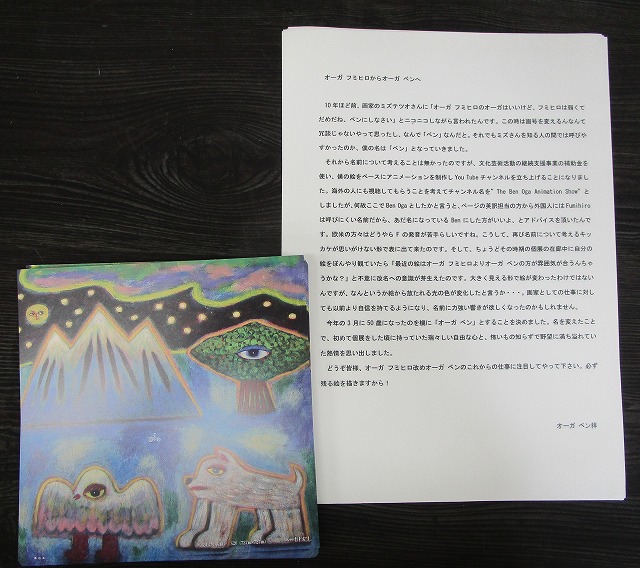 オーガ フミヒロからオーガ ベンへ
10年ほど前、画家のミズテツオさんに「オーガ フミヒロのオーガはいいけど、フミヒロは弱くて
だめだね、ベンにしなさい」とニコニコしながら言われたんです。この時は画号を変えるんなんて
冗談じゃないやって思ったし、なんで「ベン」なんだと。それでもミズさんを知る人の間では呼びや
すかったのか、僕の名は「ベン」となっていきました。
それから名前について考えることは無かったのですが、文化芸術活動の継続支援事業の補助金を
使い、僕の絵をベースにアニメーションを制作しYouTubeチャンネルを立ち上げることになりまし
た。海外の人にも視聴してもらうことを考えてチャンネル名を"The Ben Oga Animation Show"と
しましたが、何故ここでBen Ogaとしたかと言うと、ページの英訳担当の方から外国人にはFumihiro
は呼びにくい名前だから、あだ名になっているBenにした方がいいよ、とアドバイスを頂いたんで
す。欧米の方々はどうやらFの発音が苦手らしいですね。こうして、再び名前について考えるキッ
カケが思いがけない形で表に出て来たのです。そして、ちょうどその時期の個展の在廊中に自分の
絵をぼんやり観ていたら「最近の絵はオーガ フミヒロよりオーガ ベンの方が雰囲気が合うんちゃ
うかな？」と不意に改名への意識が芽生えたのです。大きく見える形で絵が変わったわけではない
んですが、なんというか絵から放たれる光の色が変化したと言うか・・・。画家としての仕事に対し
ても以前より自信を持てるようになり、名前に力強い響きが欲しくなったのかもしれません。
今年の3月に50歳になったのを機に「オーガ ベン」とすることを決めました。名を変えたこと
で、初めて個展をした頃に持っていた瑞々しい自由な心と、怖いもの知らずで野望に満ち溢れてい
た熱情を思い出しました。
どうぞ皆様、オーガ フミヒロ改めオーガ ベンのこれからの仕事に注目してやって下さい。必ず
残る絵を描きますから！
オーガ ベン拝